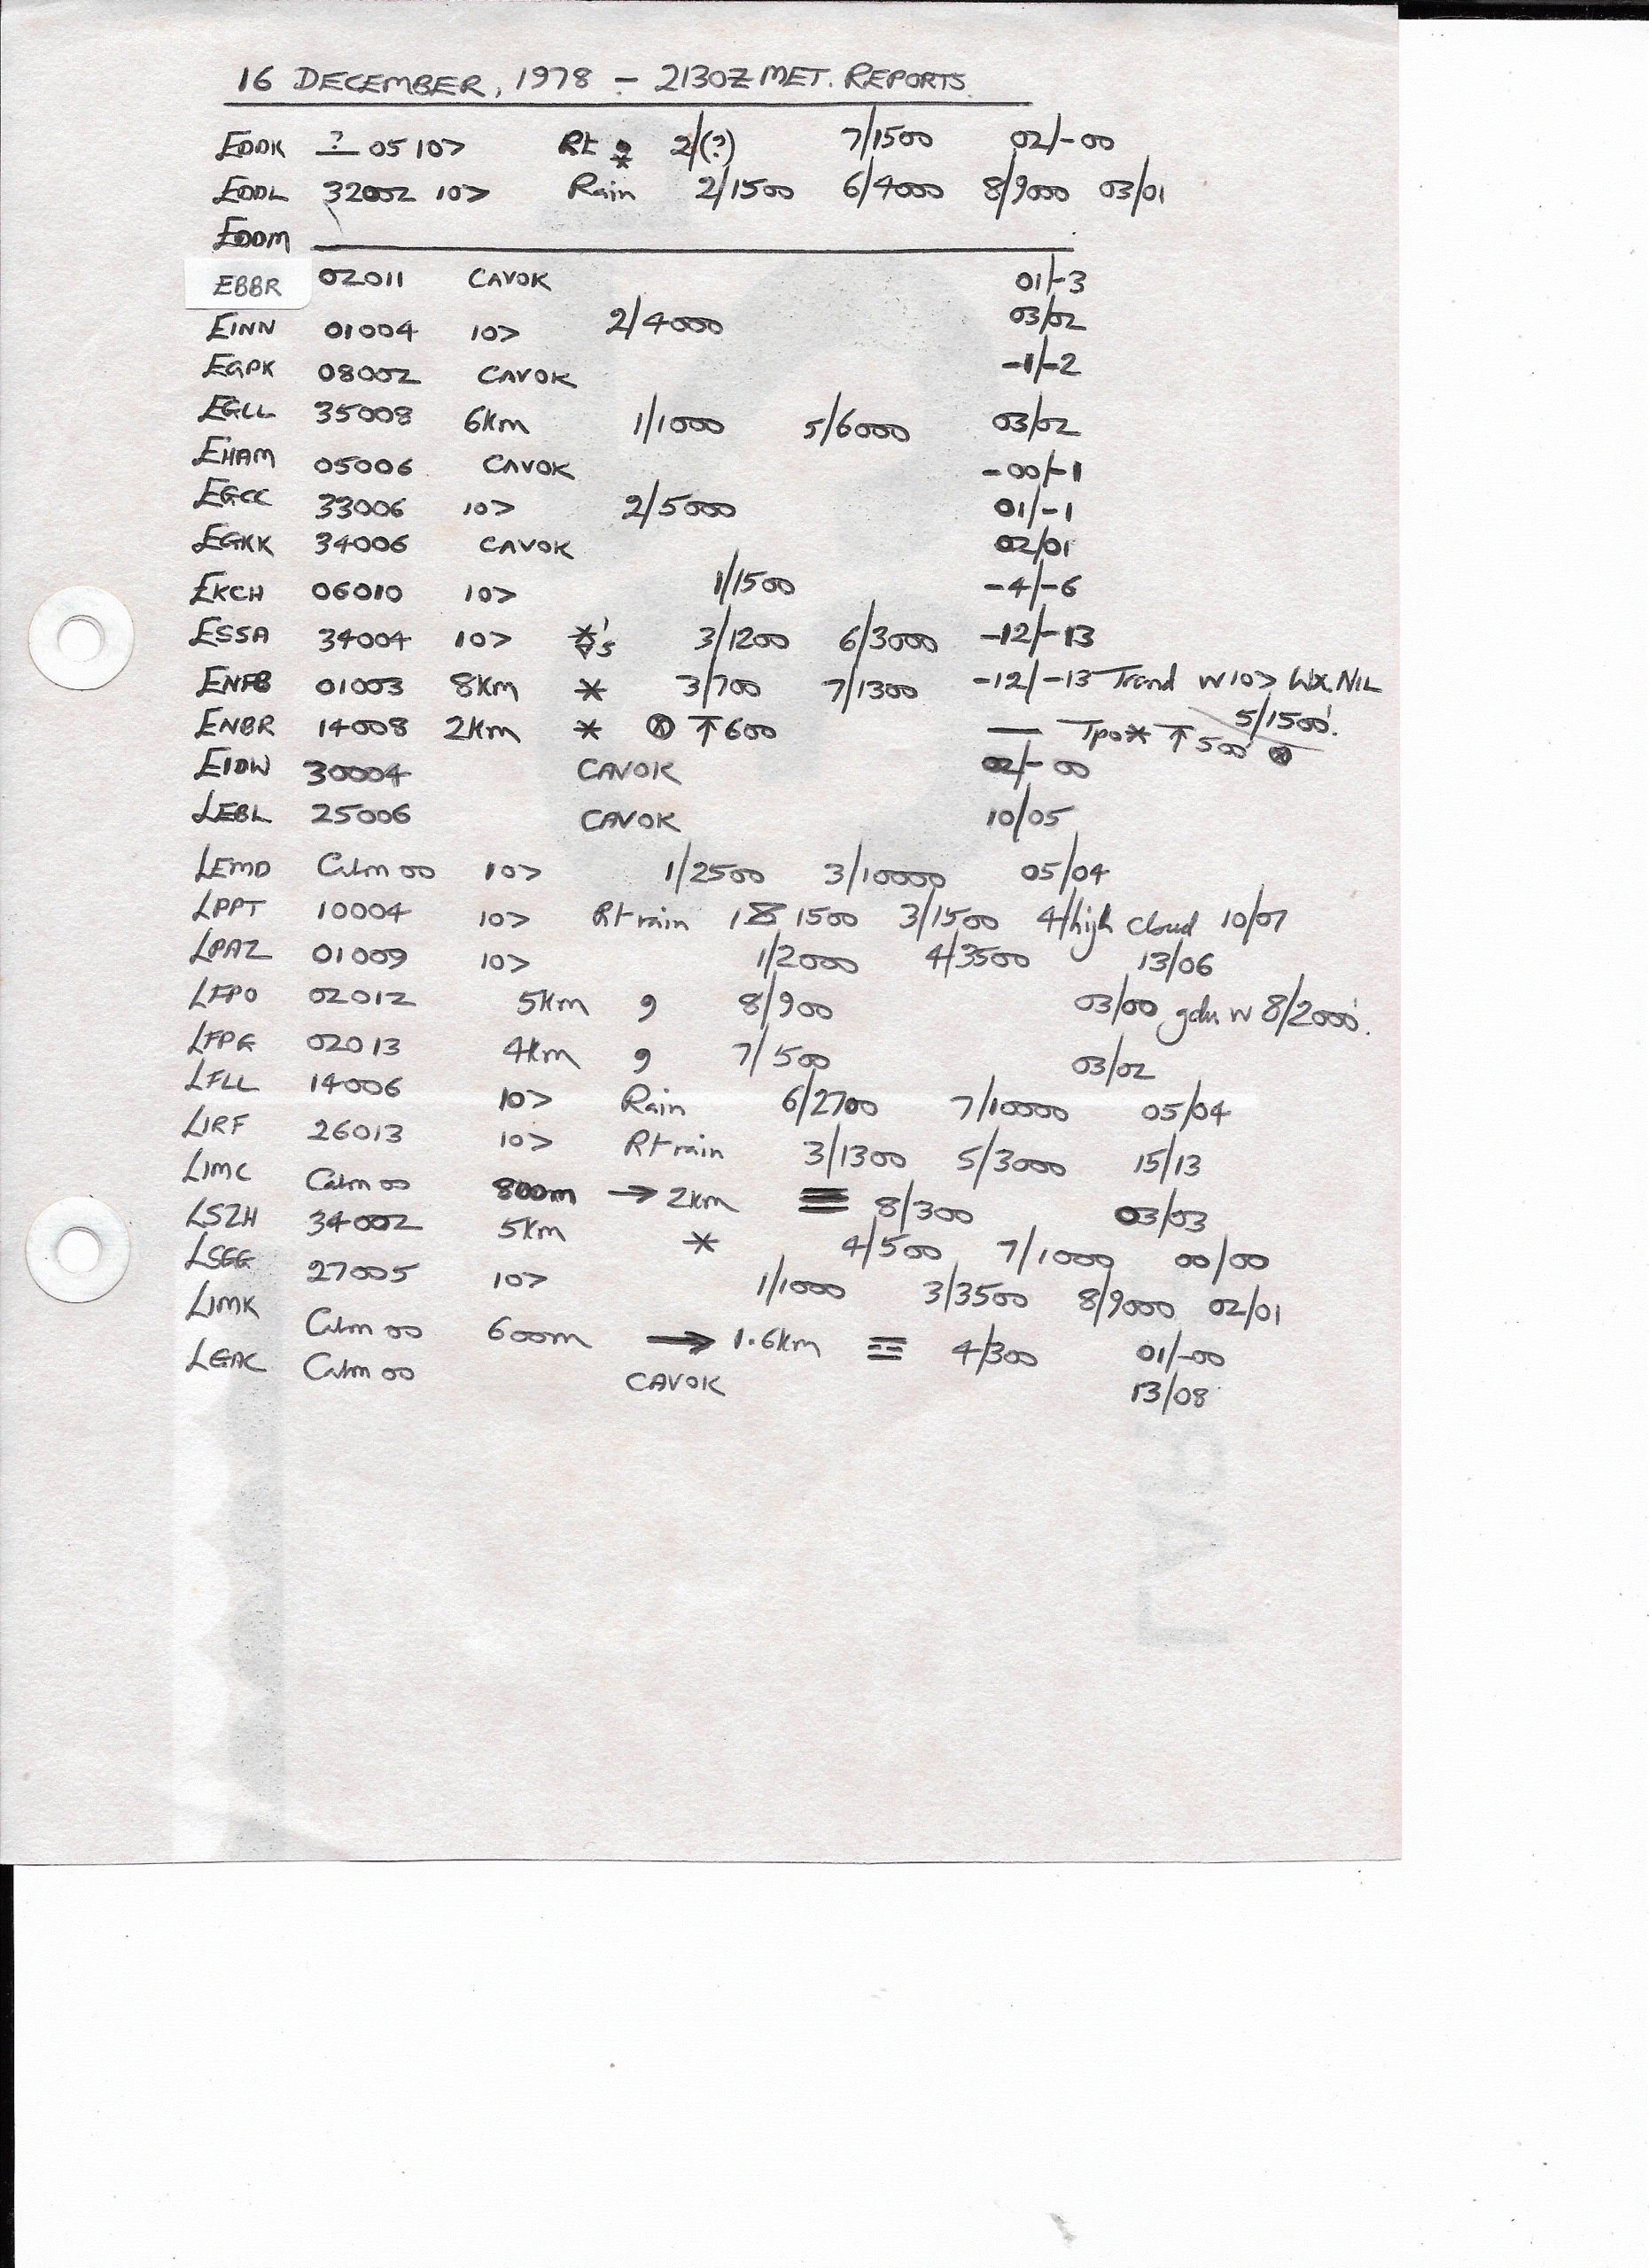 16 DECEMBER, 1978 – 2130Z MET. REPORTS.
EDDK ? 05 10> Rt 2/(?) 7/1500 02/-00
EDDL 32002 10> Rain 2/1500 6/4000 8/9000 03/01
EDDM
EBBR 02011 CAVOK 01/-3
EINN 01004 10> 2/4000 03/02
EGPK 08002 CAVOK -1/-2
EGLL 35008 6Km 1/1000 5/6000 03/02
EHAM 05006 CAVOK -00/-1
EGCC 33006 10> 2/5000 01/-1
EGKK 34006 CAVOK 02/01
EKCH 06010 10> 1/1500 -4/-6
ESSA 34004 10> 3/1200 6/3000 -12/-13
ENFB 01003 8Km * 3/700 7/1300 -12/-13 Trend W 10> WX.NIL 5/1500'.
ENBR 14008 2Km * ⊗ ↑600 — Tpo * ↑ 500 ⊗
EIDW 30004 CAVOK 02/-00
LEBL 25006 CAVOK 10/05
LEMD Calm 00 10> 1/2500 3/10000 05/04
LPPT 10004 10> Rt rain 1 1500 3/1500 4/high cloud 10/07
LPAZ 01009 10> 1/2000 4/3500 13/06
LFPO 02012 5Km , 8/900 03/00 gdu W 8/2000'.
LFPG 02013 4Km , 7/500 03/02
LFLL 14006 10> Rain 6/2700 7/10000 05/04
LIRF 26013 10> Rt rain 3/1300 5/3000 15/13
LIMC Calm 00 800m → 2Km ≡ 8/300 03/03
LSZH 34002 5Km * 4/500 7/1000 00/00
LSGG 27005 10> 1/1000 3/3500 8/9000 02/01
LIMK Calm 00 600m → 1.6Km 4/300 01/-00
LGAC Calm 00 CAVOK 13/08